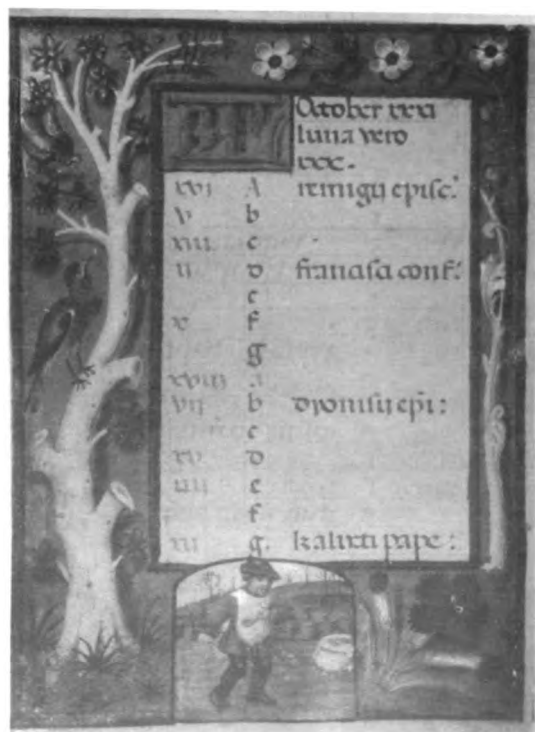 KL
October xxxi
luna vero
xxx.
xvi A remigii episc.
v b
xiii c
ii d francisci conf.
e
x f
g
xviii a
vii b dyonisii epi:
c
xv d
iiii e
f
xii g. kalixti pape: